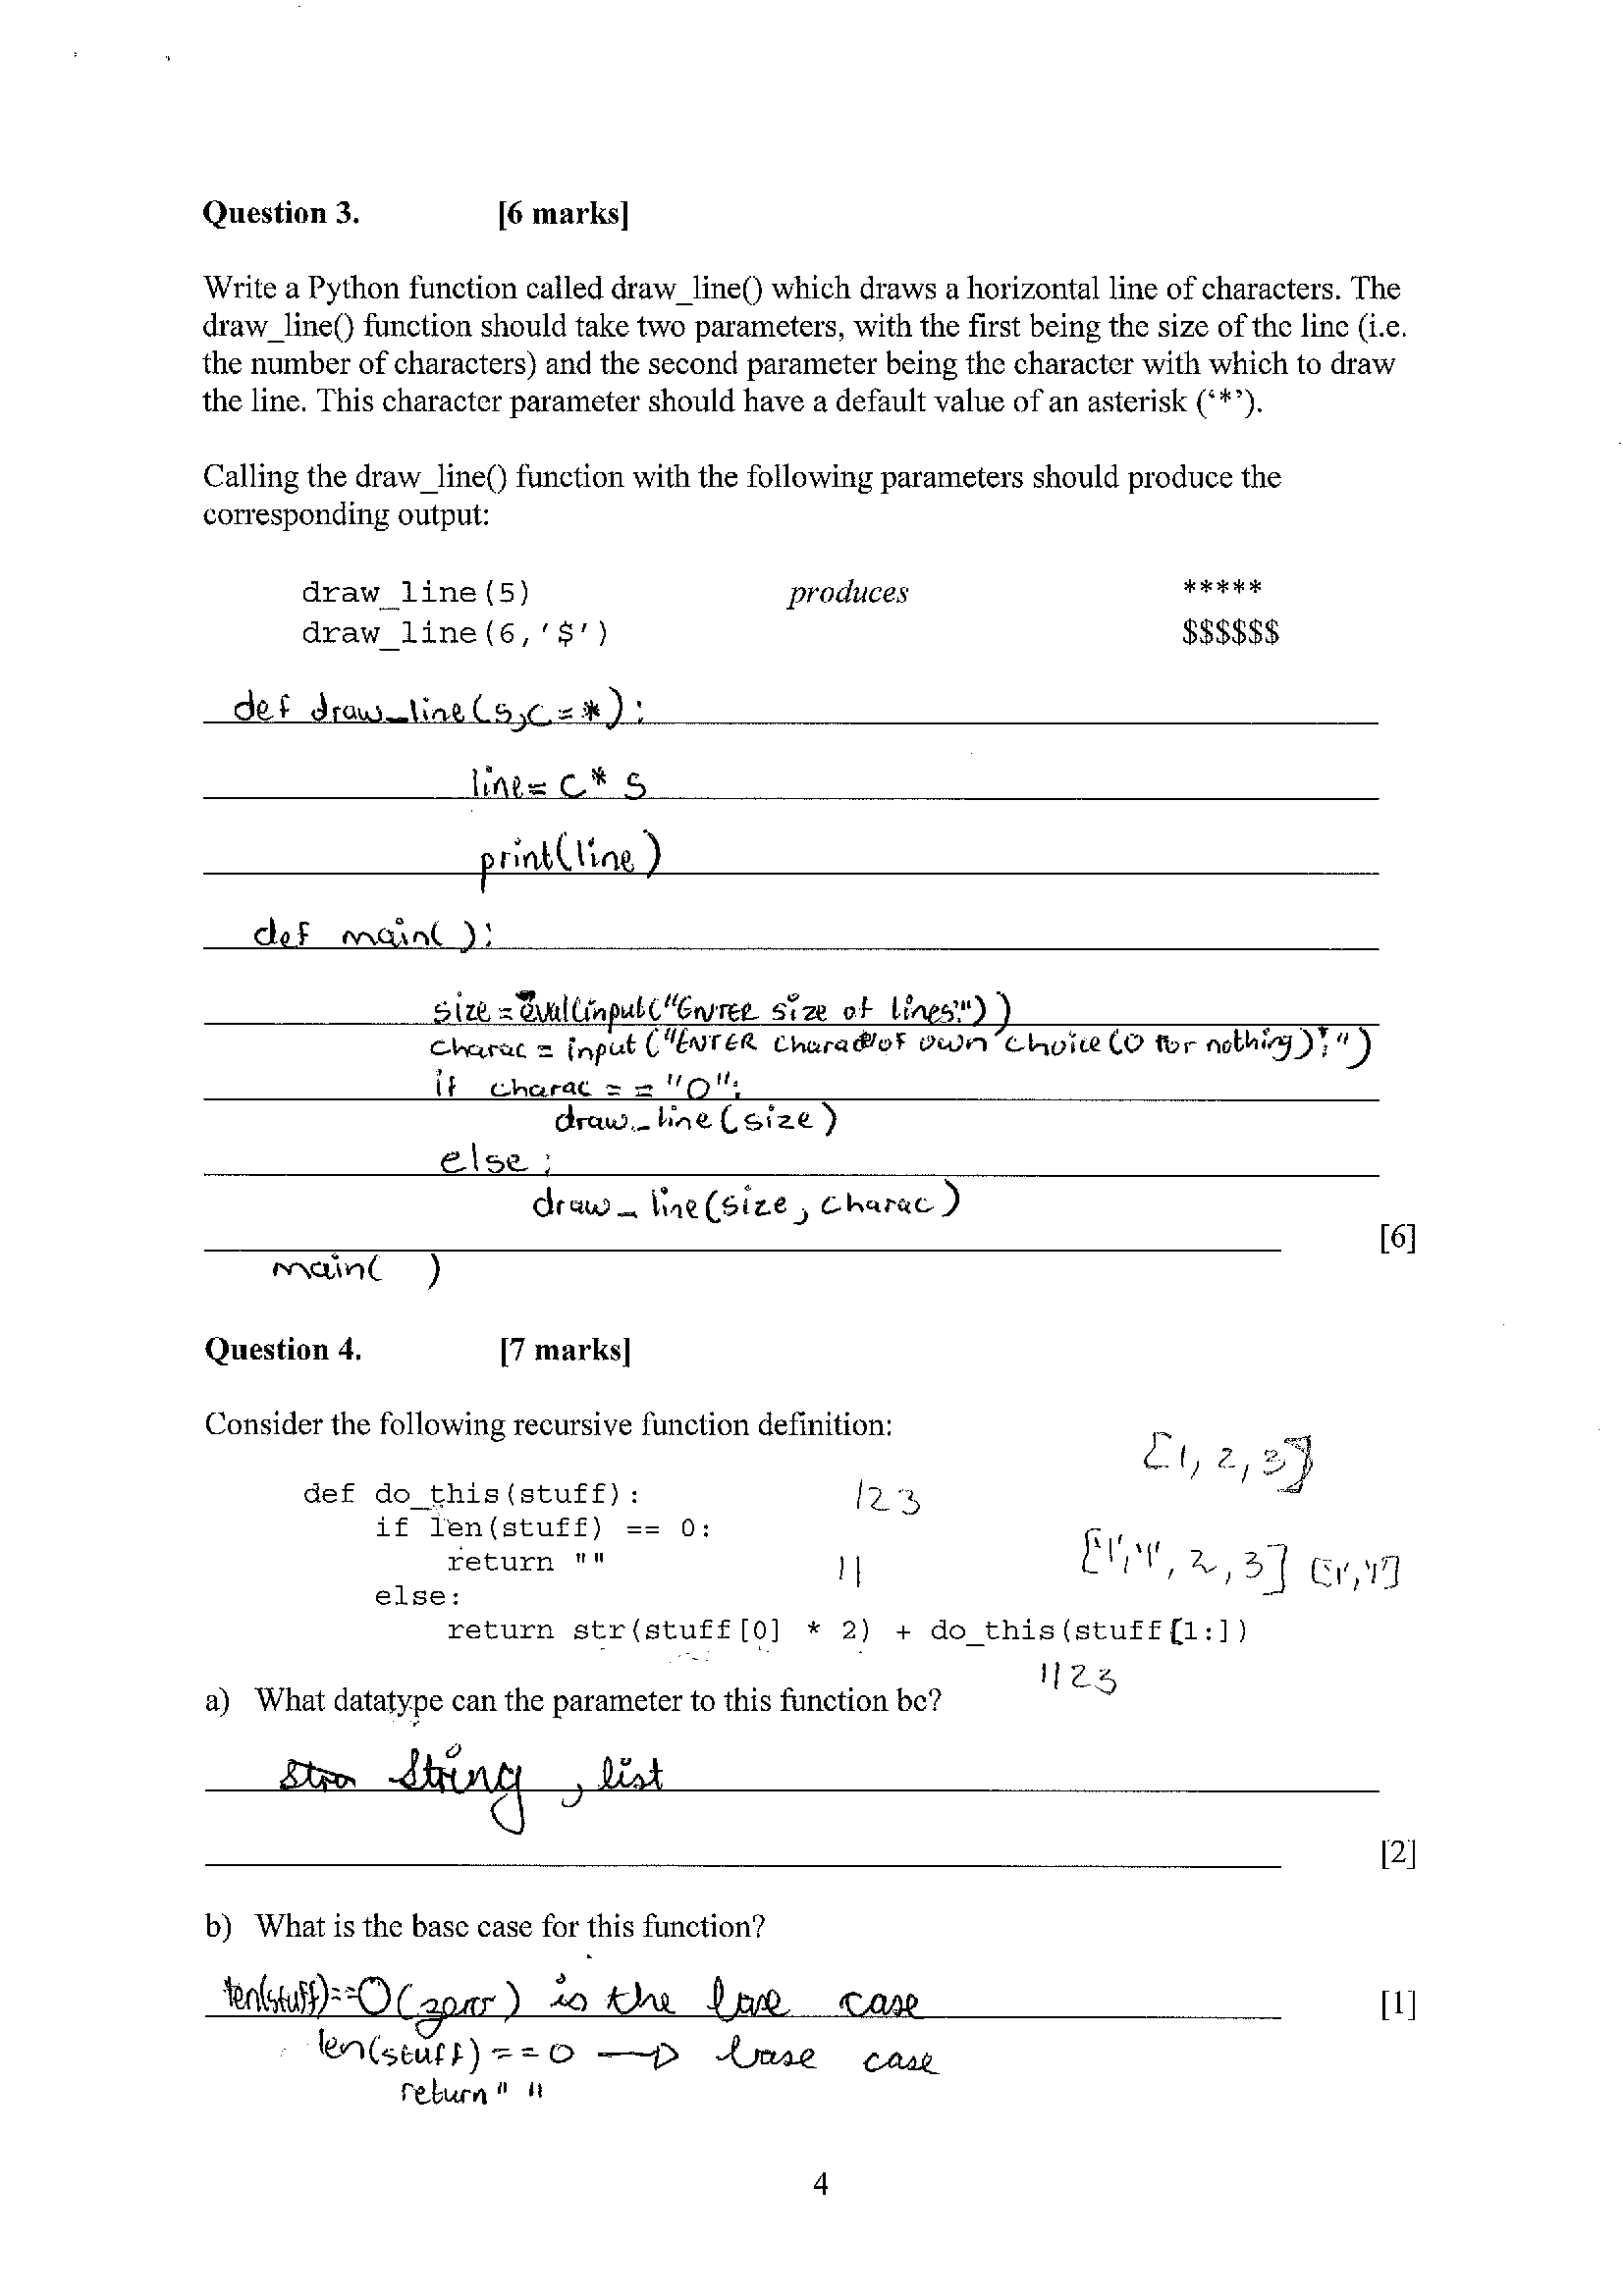 Question 3. [6 marks]
Write a Python function called draw_line() which draws a horizontal line of characters. The
draw_line() function should take two parameters, with the first being the size of the line (i.e.
the number of characters) and the second parameter being the character with which to draw
the line. This character parameter should have a default value of an asterisk (‘*’).
Calling the draw_line() function with the following parameters should produce the
corresponding output:
draw_line(5) produces *****
draw_line(6,'$') $$$$$$
def draw_line(s,c=*):
line= c* s
print(line)
def main( ):
size = eval(input("ENTER size of lines:"))
charac = input ("ENTER charac of own choice (0 for nothing):")
if charac == "0":
draw_line(size)
else:
draw_line(size, charac)
[6]
main( )
Question 4. [7 marks]
Consider the following recursive function definition:
[1, 2, 3]
def do_this(stuff): 123
if len(stuff) == 0:
['1','1', 2, 3] ['1','1']
return "" 11
else:
return str(stuff[0] * 2) + do_this(stuff[1:])
1123
a) What datatype can the parameter to this function be?
String, list
[2]
b) What is the base case for this function?
len(stuff)==0(zero) is the base case [1]
len(stuff)==0 → base case
return " "
4